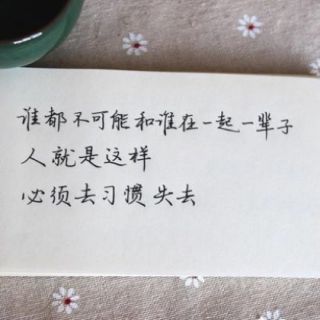 谁都不可能和谁在一起一辈子
人就是这样
必须去习惯失去